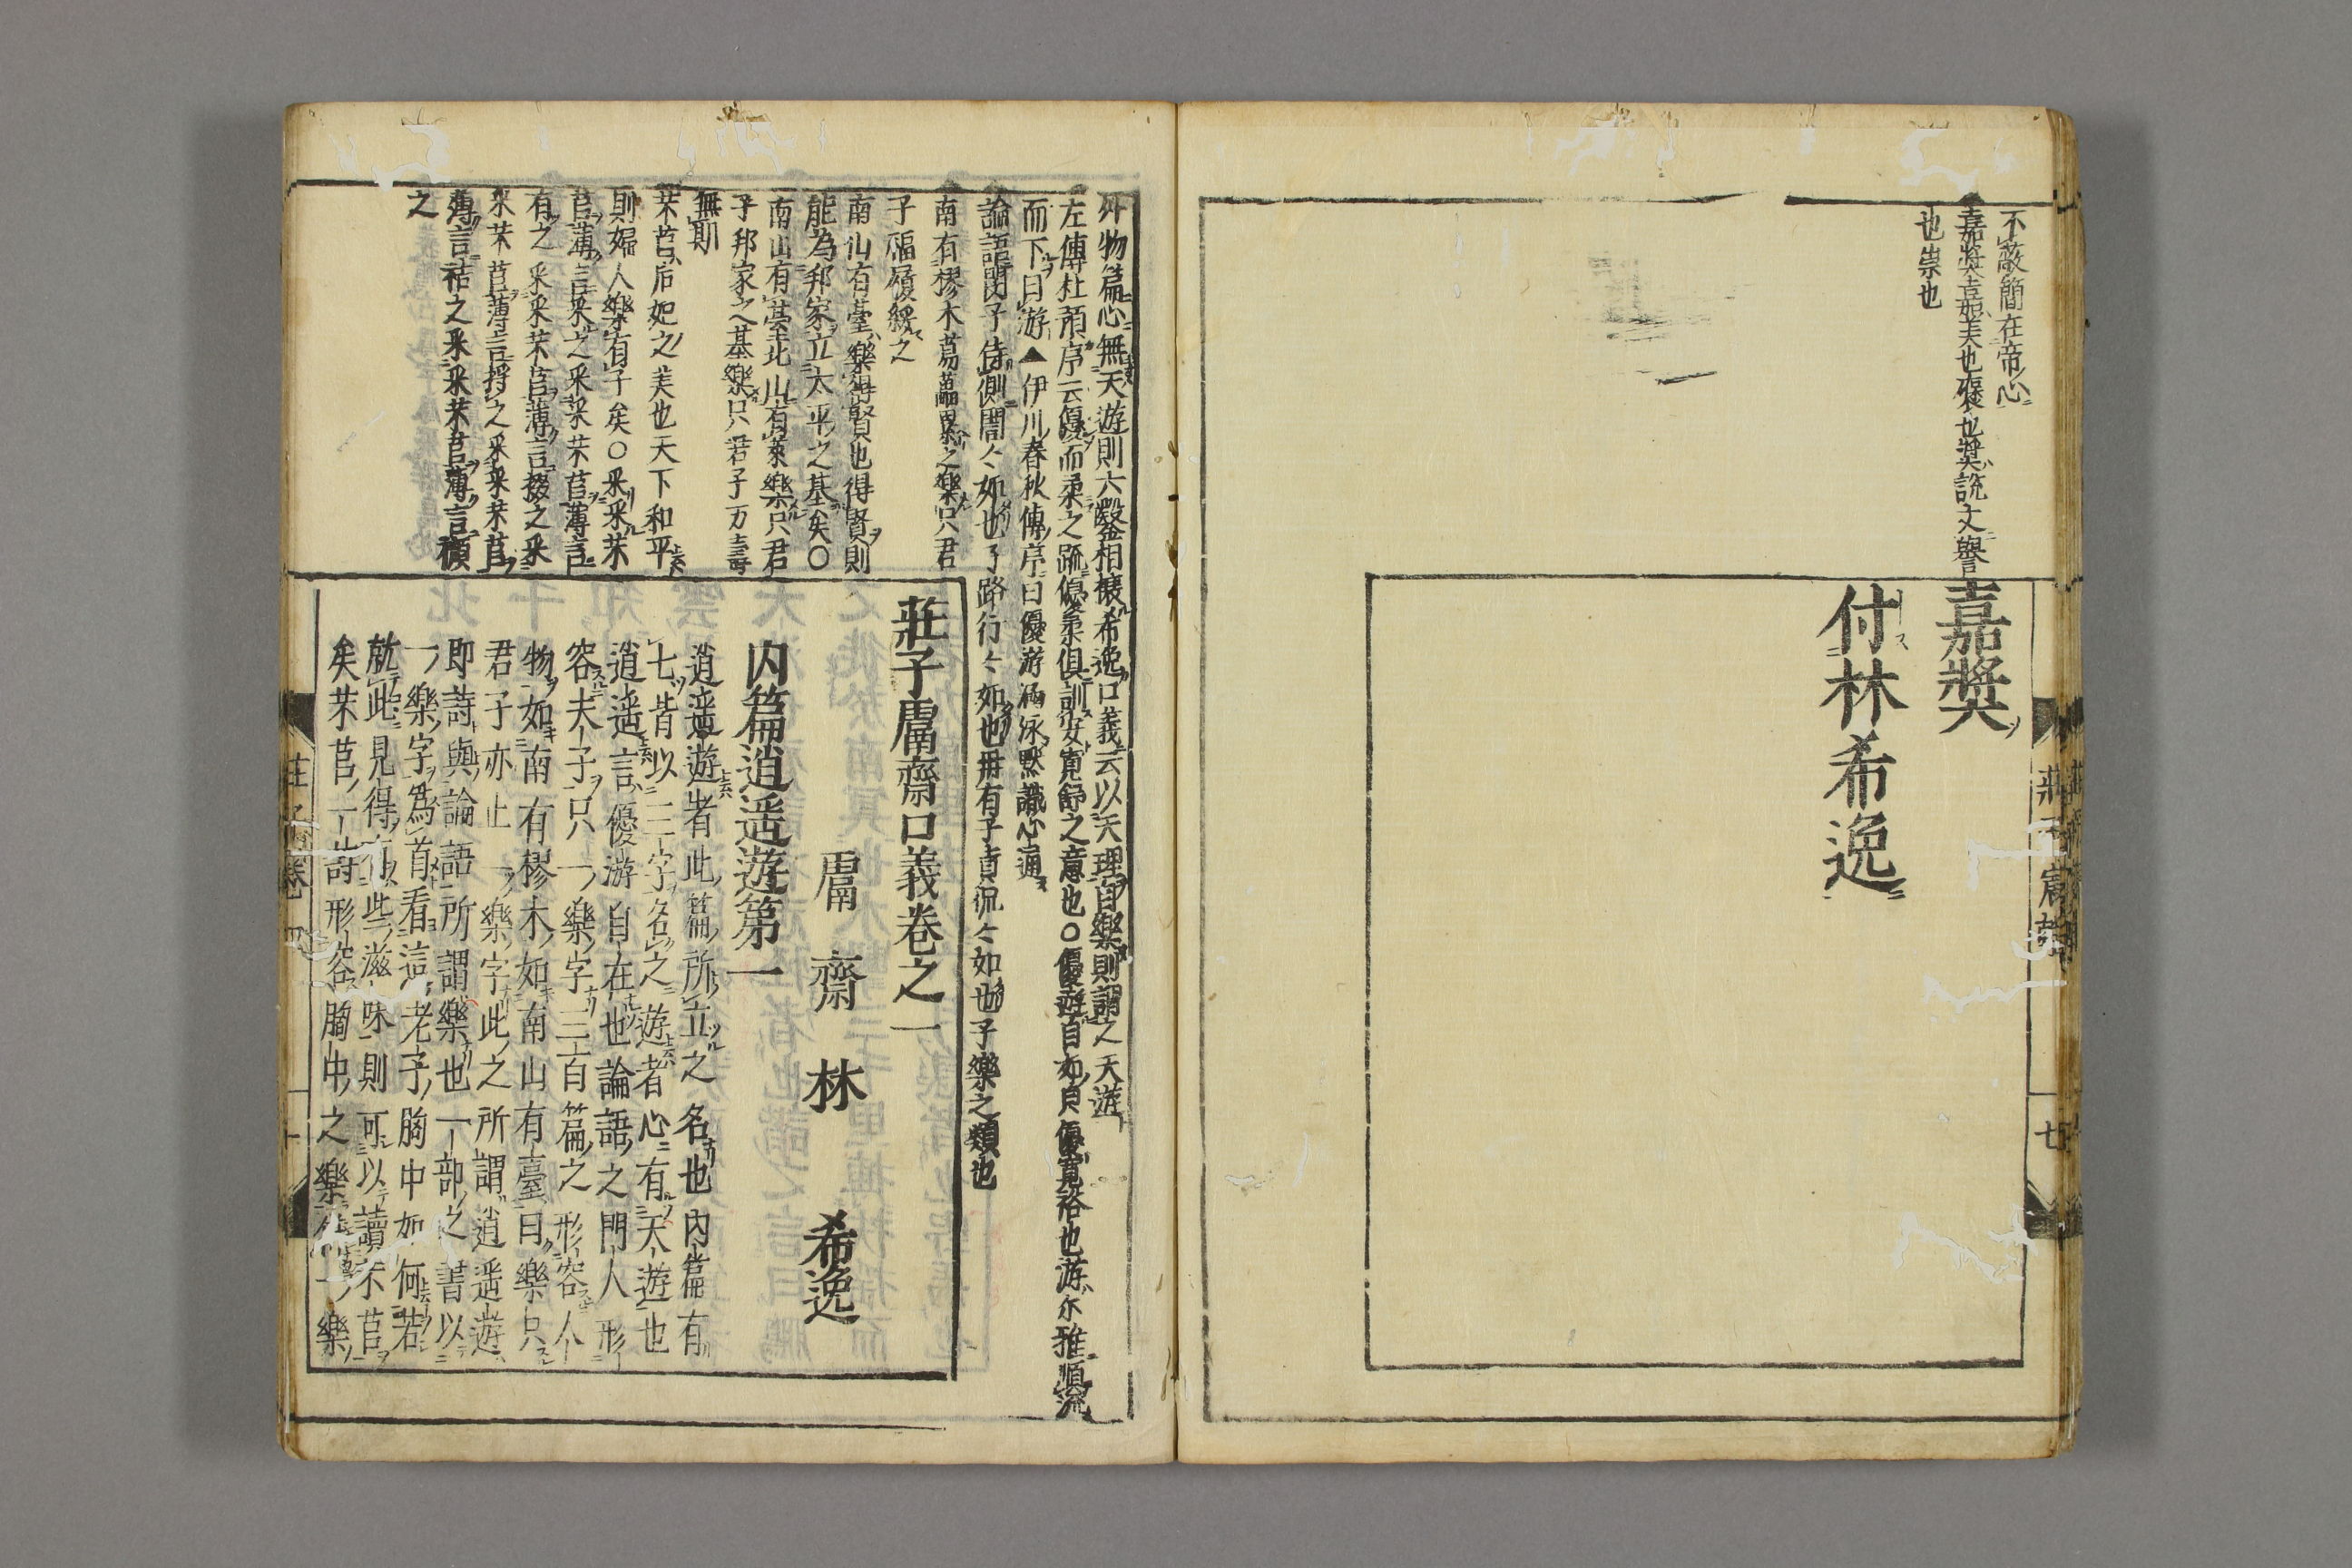 不蔽簡在帝心
嘉奬喜恕美也褒也奬説文譽
也崇也
嘉奬
付林希逸
外物篇心無天遊則六鑿相攘希逸口義云以天理自樂則謂之天遊
左傳杜預序云優而柔之䟽優柔俱訓安寛舒之意也〇優遊自如貝優寛裕也游尓雅順流
而下曰游▲伊川春秋傳序曰優游涵泳默識心通
論語閔子侍側誾々如也子路行々如也冊有子貢侃々如也子樂之類也
南有樛木葛藟纍之樂只君
子福履綏之
南山有臺樂得賢也得賢則
能為邦家立太平之基矣〇
南山有䑓北山有萊樂只君
子邦家之基樂只君子万壽
無期
芣苢后妃之美也天下和平
則婦人樂有子矣〇采采芣
苢薄言采之采采芣苢薄言
有之采采芣苢薄言掇之采
采芣苢薄言捋之采采芣苢
薄言袺之采采芣苢薄言襭
之
莊子鬳齋口義卷之一
鬳齋林希逸
内篇逍遥遊第一
逍遥遊者此篇所立之名也内篇有
七皆以三字名之遊者心有天遊也
逍遥言優游自在也論語之門人形
容夫子只一樂字三百篇之形容人
物如南有樛木如南山有臺曰樂只
君子亦止一樂字此之所謂逍遥遊
即詩與論語所謂樂也一部之書以
一樂字為首看這老子胸中如何若
就此見得有些滋味則可以讀芣苢
矣芣苢一詩形容胸中之樂 一樂